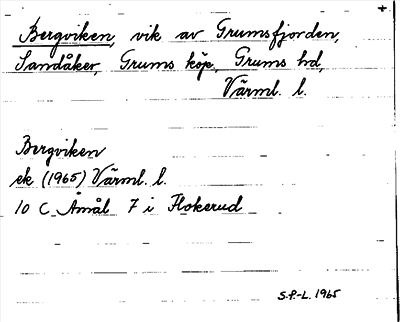 Bergviken, vik av Grumsfjorden,
Sandåker, Grums köp., Grums hd,
Värml. l.
Bergviken
ek (1965) Värml. l.
10 C Åmål 7 i Flokerud
S.P.-L. 1965